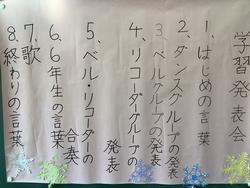 学習発表会
1、はじめの言葉
2、ダンスグループの発表
3、ベルグループの発表
4、リコーダーグループの
発表
5、ベル・リコーダーの
合奏
6、6年生の言葉
7、歌
8、終わりの言葉